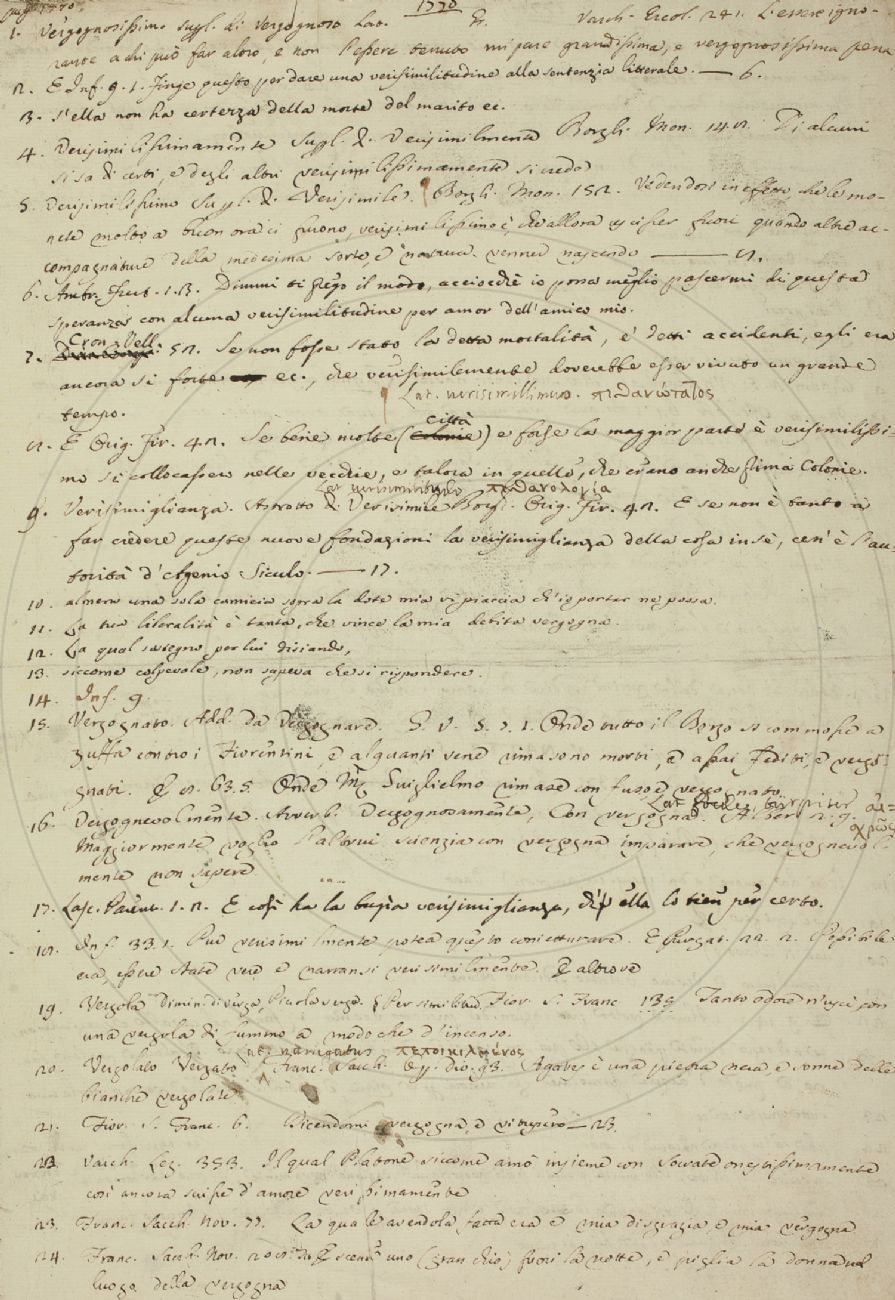 1770.
1. Vergognosissimo supl. di Vergognoso Lat. Gr. Varch. Ercol. 241. L'essere igno-
rante a chi può far altro, e non l'essere tenuto mi pare grandissima, e vergognosissima pena
2. E Inf. 9. 1. Finge questo per dare una verisimilitudine alla sentenzia litterale. — 6.
3. s'ella non ha certezza della morte del marito ec.
4. Verisimilissimamente Supl. di Verisimilmente Borgh. Mon. 142. Di alcuni
si sa di certi, e degli altri verisimilissimamente si crede
5. Verisimilissimo Supl. di Verisimile. Borgh. Mon. 152. Vedendosi in effetto, che le mo-
nete molto a buon ora ci furono, verisimilissimo è, che allora uscisser fuori quando altre ac-
compagnature della medesima sorte, e natura venner nascendo —
6. Ambr. Furt. 1. 3. Dimmi ti prego il modo, acciocchè io possa meglio pascermi di questa
speranza con alcuna verisimilitudine per amor dell'amico mio.
7. Cron. Vell. 52. Se non fosse stato la detta mortalità, e' detti accidenti, egli era
ancora si forte ec., che verisimilemente doverebbe esser vivuto un grande
tempo. Lat. verisimillimus. πιθανώτατος
8. E Orig. Fir. 42. Se bene molte (città) e forse la maggior parte è verisimilissi-
mo si collocassero nelle vecchie, e talora in quelle, che erano anche prima Colonie.
Lat. verisimilitudo πιθανολογία
9. Verisimiglianza. Astratto di Verisimile Borgh. Orig. Fir. 42. E se non è tanto a
far credere queste nuove fondazioni la verisimiglianza della cosa in sè, cen' è l'au-
torità d'Agenio Siculo. — 17.
10. almeno una sola camicia sopra la dote mia vi piaccia ch'io portar ne possa.
11. La tua liberalità è tanta, che vince la mia debita vergogna.
12. La qual sostegno per lui disiando,
13. siccome colpevole, non sapeva che si rispondere.
14. Inf. 9.
15. Vergognato. Add. da Vergognare. G. V. 5. 7. 1. Onde tutto il Borgo si commosse a
zuffa contro i Fiorentini, e alquanti vene rimasono morti, e assai Fediti, e vergo-
gnati. E 8. 63. 5. Onde M. Guiglielmo rimase confuso, e vergognato.
16. Vergognevolmente. Avverb. Vergognosamente, Con vergogna. Lat. turpiter αἰσχρῶς Alber. 2. 9.
Maggiormente voglio l'altrui scienzia con vergogna imparare, che vergognevol-
mente non sapere
17. Lasc. Parent. 1. 2. E così ha la bugia verisimiglianza, ch'ella lo tien per certo.
18. Inf. 33. 1. Può verisimilmente potea questo conietturare. E Purgat. 22. 2. Possibile
era, essere state vere e narransi verisimilmente. E altrove
19. Vergola Dimin. di verga, Piccola verga. Per similitud. Fior. S. Franc. 139. Tanto odore n'uscì con
una vergola di fummo a modo che d'incenso.
Lat. variegatus πεποικιλμένος
20. Vergolato Vergato Franc. Sacch. Op. div. 93. Agates è una pietra nera, e sonne delle
bianche vergolate
21. Fior. S. Franc. 6. Dicendomi vergogna, e vitupero — 23.
22. Varch. Lez. 353. Il qual Platone siccome amò insieme con Socrate onestissimamente
così ancora scrisse d'amore verissimamente
23. Franc. Sacch. Nov. 77. La quale avendola fatta era e mia disgrazia, e mia vergogna
24. Franc. Sacch. Nov. uno (gran chio) fuori la notte, e piglia la donna nel
luogo della vergogna